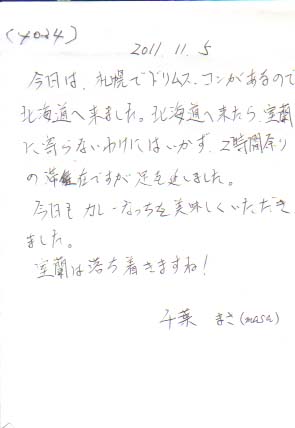 (4024)
2011. 11. 5
今日は、札幌でドリムス.コンがあるので
北海道へ来ました。北海道へ来たら、室蘭
に寄らないわけにはいかず、2時間余り
の滞在ですが足を延しました。
今日も カレーなっちを美味しくいただき
ました。
室蘭は落ち着きますね!
千葉 まさ(masa)